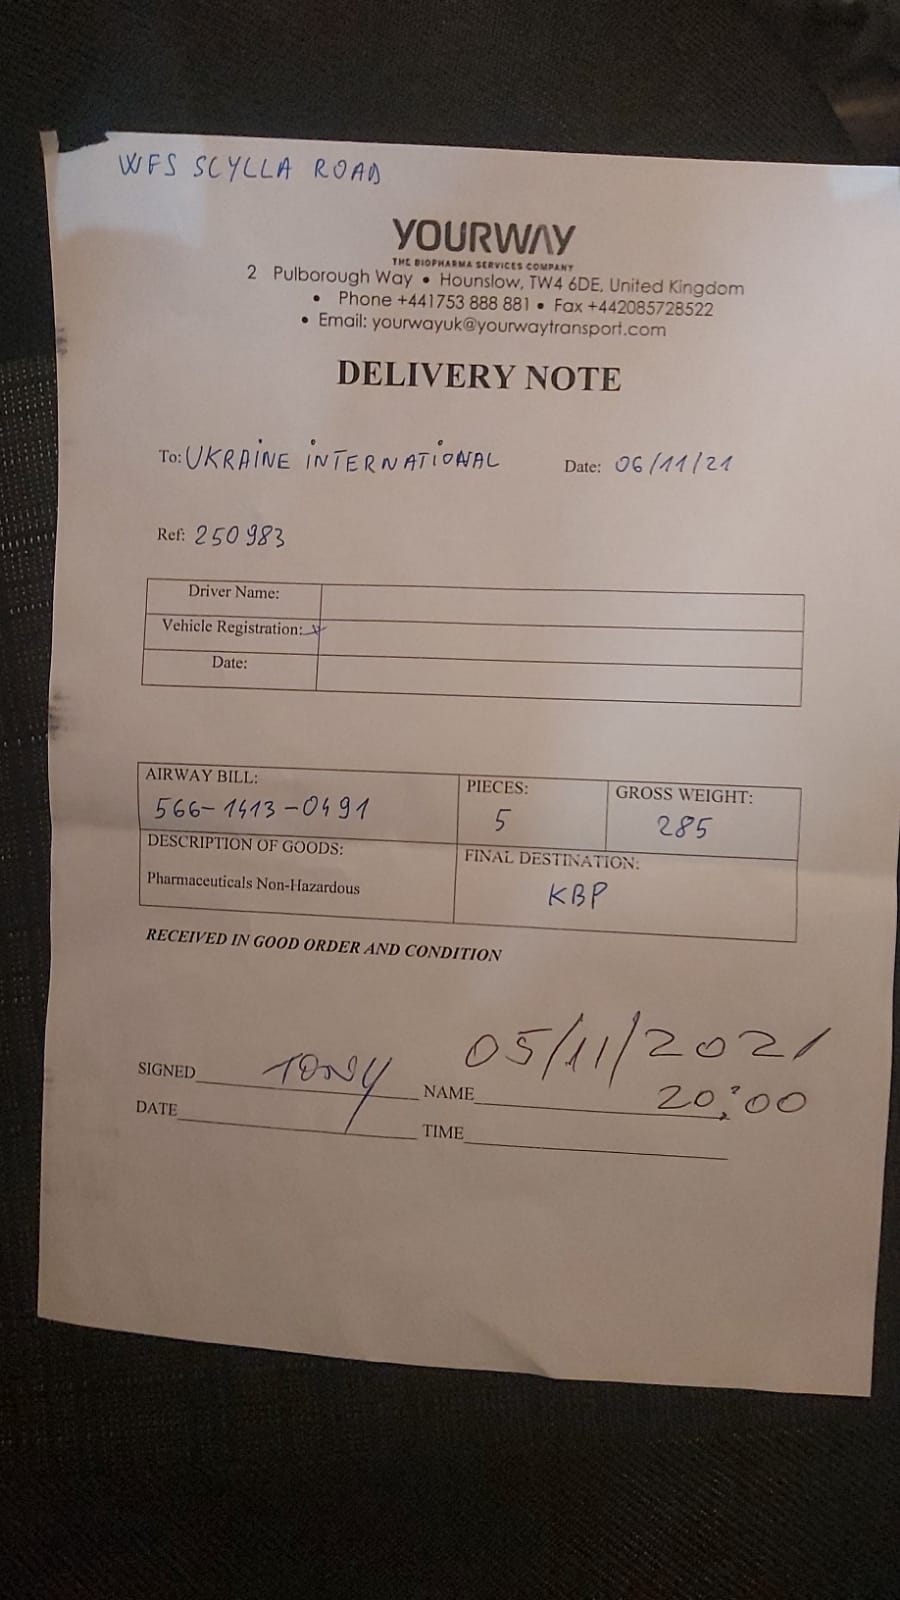 WFS SCYLLA ROAD
YOURWAY
THE BIOPHARMA SERVICES COMPANY
2 Pulborough Way • Hounslow, TW4 6DE, United Kingdom
• Phone +441753 888 881 • Fax +442085728522
• Email: yourwayuk@yourwaytransport.com
DELIVERY NOTE
To: UKRAINE INTERNATIONAL Date: 06/11/21
Ref: 250983
Driver Name:
Vehicle Registration:
Date:
AIRWAY BILL: PIECES: GROSS WEIGHT:
566-1413-0491 5 285
DESCRIPTION OF GOODS: FINAL DESTINATION:
Pharmaceuticals Non-Hazardous KBP
RECEIVED IN GOOD ORDER AND CONDITION
05/11/2021
SIGNED TONY NAME 20:00
DATE TIME